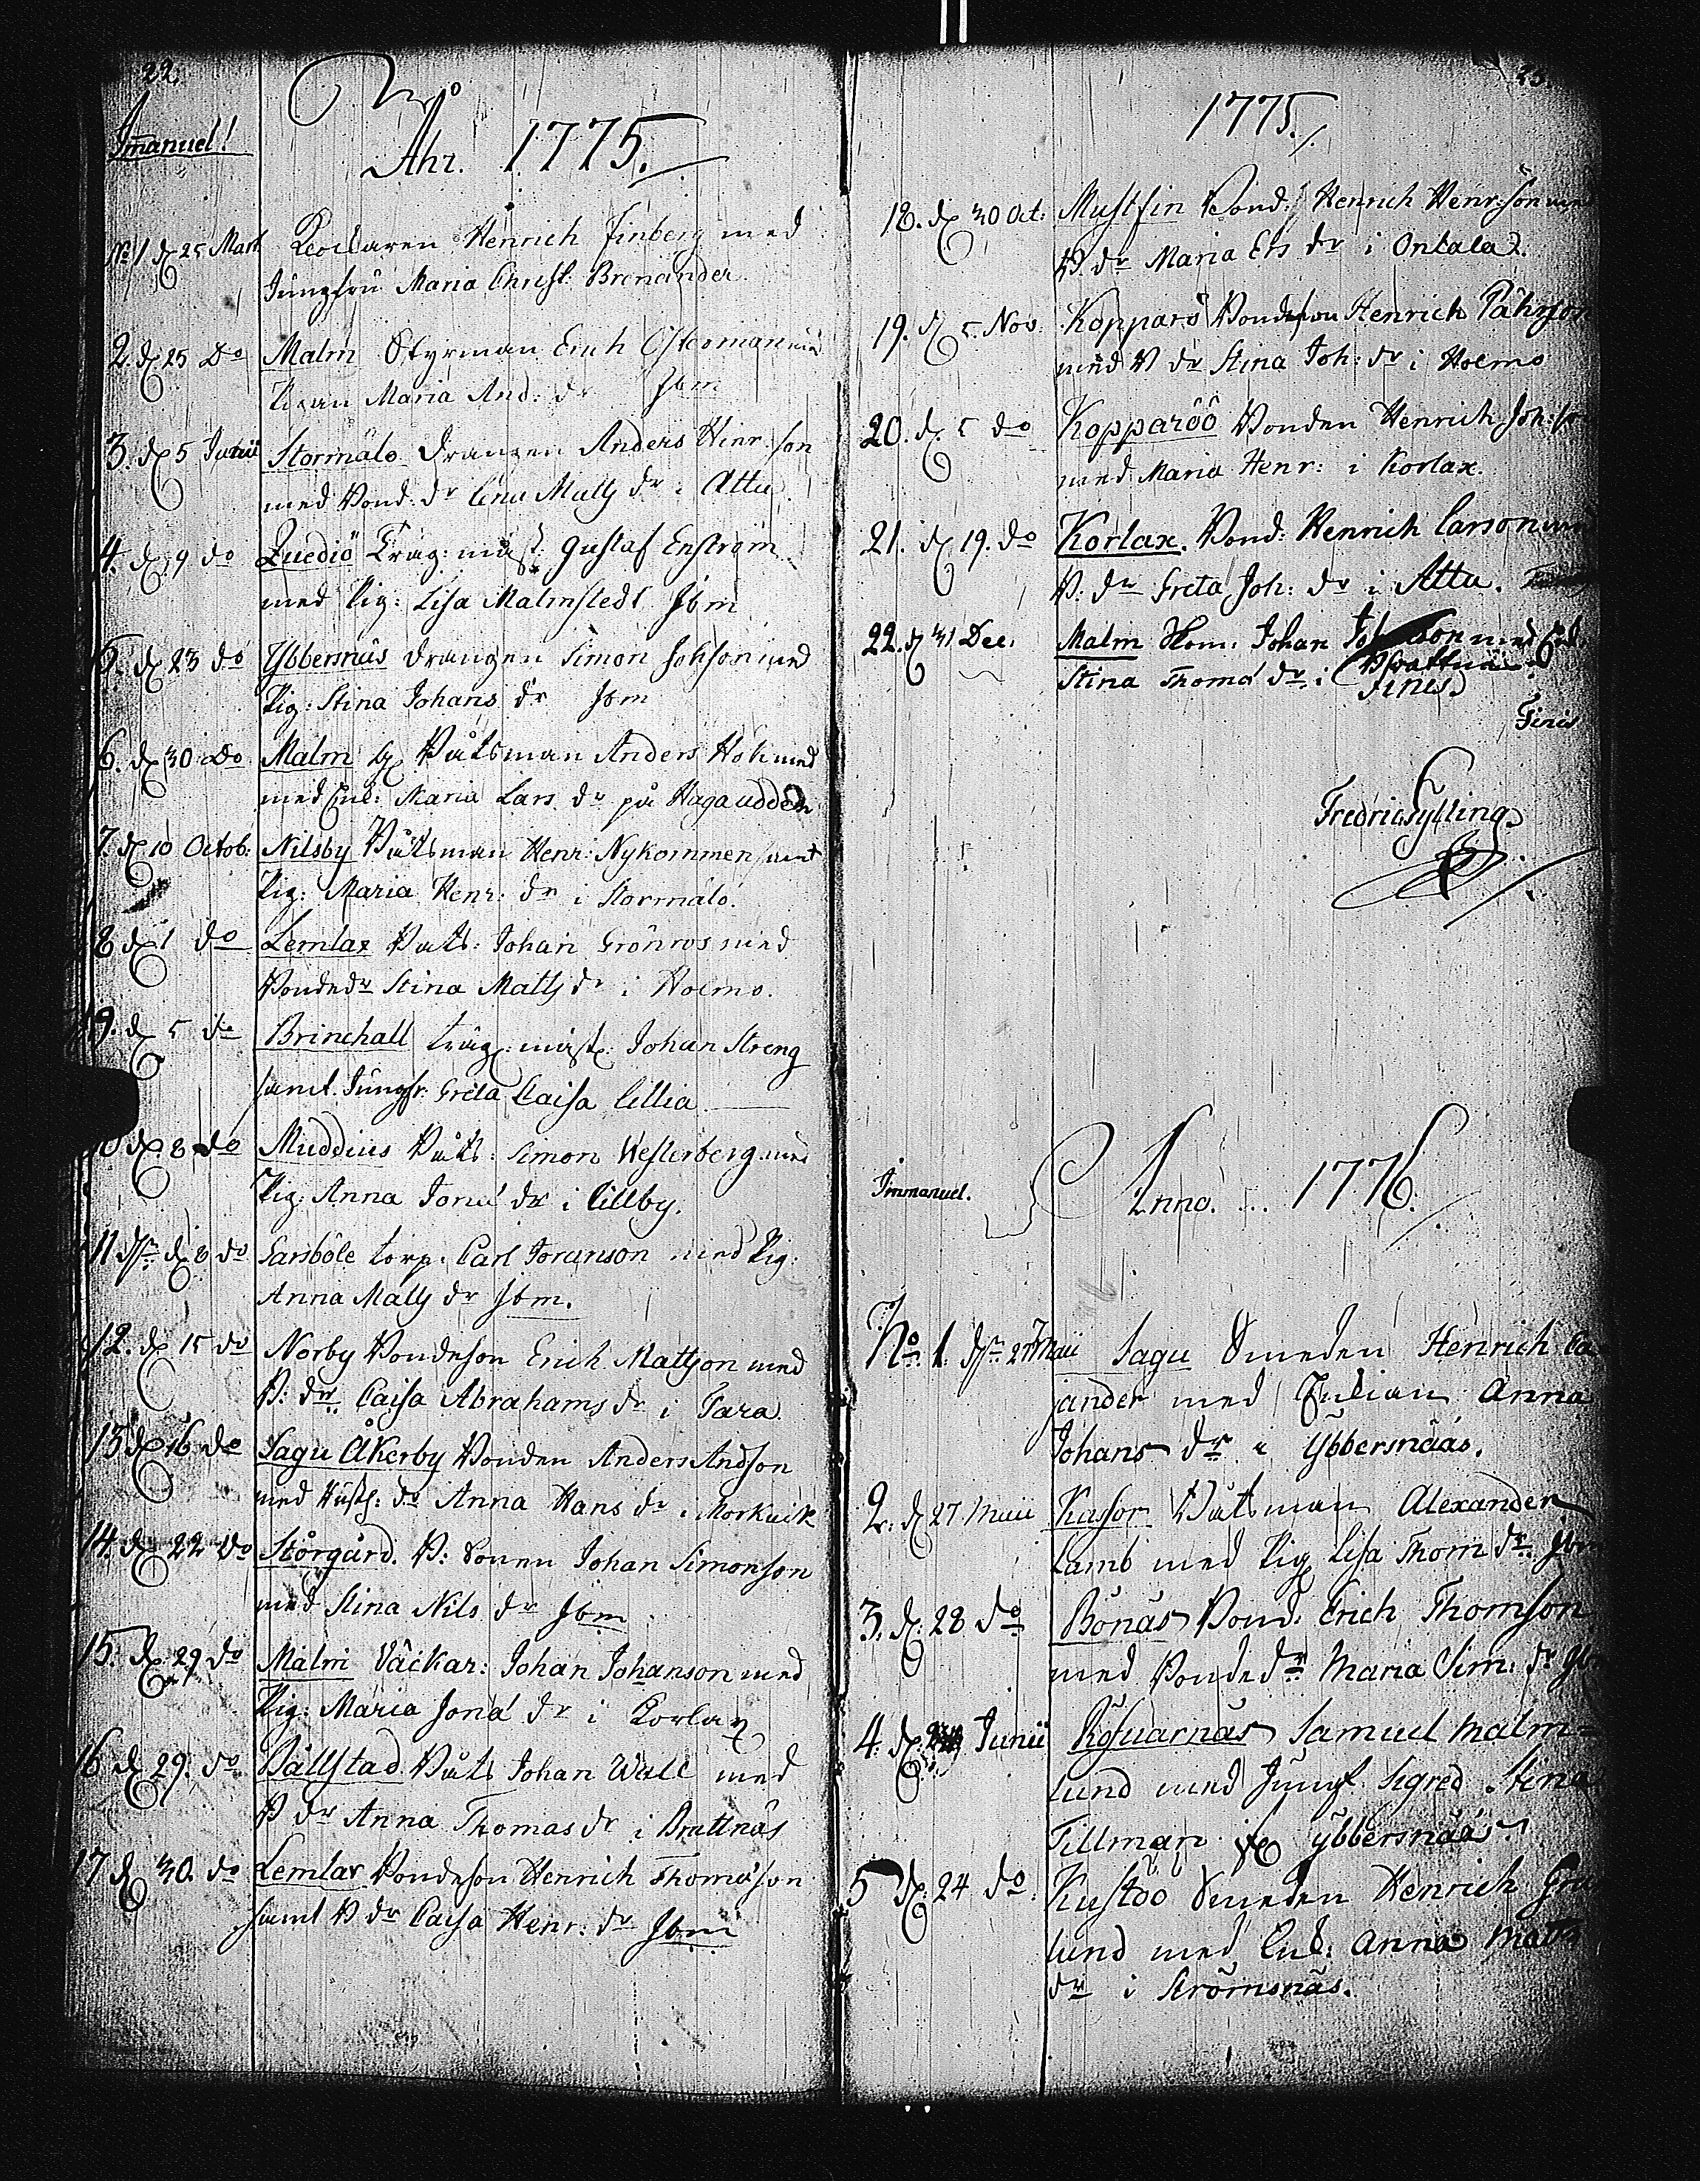 22
Immanuel!
Åhr. 1775.
No 1 d. 25 Mart Klockaren Henrich Finberg med
Jungfru Maria Christ: Brenander
2. d. 25 Do Malm Styrman Erich Osterman med
Pigan Maria And: dr Jbm
3. d. 5 Junii Stormälö Drängen Anders Hinr:son
med Bond: dr Lena Matts dr i Attu.
4. d. 9 do Qvediö Träg: mäst: Gustaf Enström
med Pig: Lisa Malmstedt Jbm
5. d. 23 do Ybbersnäs Drängen Simon Johson med
Pig: Stina Johans dr Jbm
6. d. 30 Do Malm Båtsman Anders Hök med
med Enk: Maria Lars dr på Hagaudden
7. d. 10 Octob: Nilsby Båtsman Henr: Nykommen samt
Pig: Maria Henr: dr i Stormälö.
8 d. 1 do Lemlax Båts: Johan Grönros med
Bondedr Stina Matts dr i Holmo.
9. d. 5 do Brinchall träg: mäst: Johan Streng
samt Jungfr: Greta Caisa Lillia
d. 8 do Muddius Båts: Simon Westerberg med
Pig: Anna Jona dr i Lillby.
11 d. 8 do Larsböle torp: Carl Joranson med Pig:
Anna Matts dr Jbm.
12. d. 15 do Norby Bondeson Erich Mattson med
B: dr Caisa Abrahams dr i Tara
13 d. 16 do Sagu Åkerby Bonden Anders Andson
med Husb: dr Anna Hans dr i Morkuik
14. d. 22 Do Storgård. B: Sonen Johan Simonson
med Stina Nils dr Jbm
15. d. 29 do Malm Väckar: Johan Johanson med
Pig: Maria Jona dr i Korlax
16 d. 29. do Bällstad Båts Johan Wall med
B dr Anna Thomas dr i Brattnäs
17 d. 30. do Lemlax Bondeson Henrich Thomason
samt B dr Caisa Henr: dr Jbm
1775.
18. d. 30 Oct: Mustfin Bond: Henrich Henr:son med
B. dr Maria Ers dr i Ontala
19. d. 5 Nov: Kopparö Bondeson Henrich Påhrson
med B dr Stina Joh: dr i Holmo
20. d. 5 do Kopparöö Bonden Henrich Joh:
med Maria Henr: i Korlax.
21. d. 19. do Korlax. Bond: Henrich Larson med
B: dr Greta Joh: dr i Attu.
22. d. 31 Dec. Malm Hom: Johan med
Stina Thoma dr i Brattnäs
Finis
Finis
Fredric Sylling
Immanuel.
Anno. 1776.
No. 1. d. 27 Maii Sagu Smeden Henrich
jander med Enkian Anna
Johans dr i Ybbersnääs.
2. d. 27 Maii Kassor Båtsman Alexander
Lamb med Pig Lisa Thom dr Jbm
3. d. 28 do Bönäs Bond: Erich Thomson
med Bondedr Maria Sim: dr
4. d. Junii Rösvarnäs Samuel Malm=
lund med Jungf Sigred Stina
Tillman Ybbersnääs
5 d. 24 do. Kustöö Smeden Henrich
lund med Enk: Anna Mats
dr i Strömsnäs.